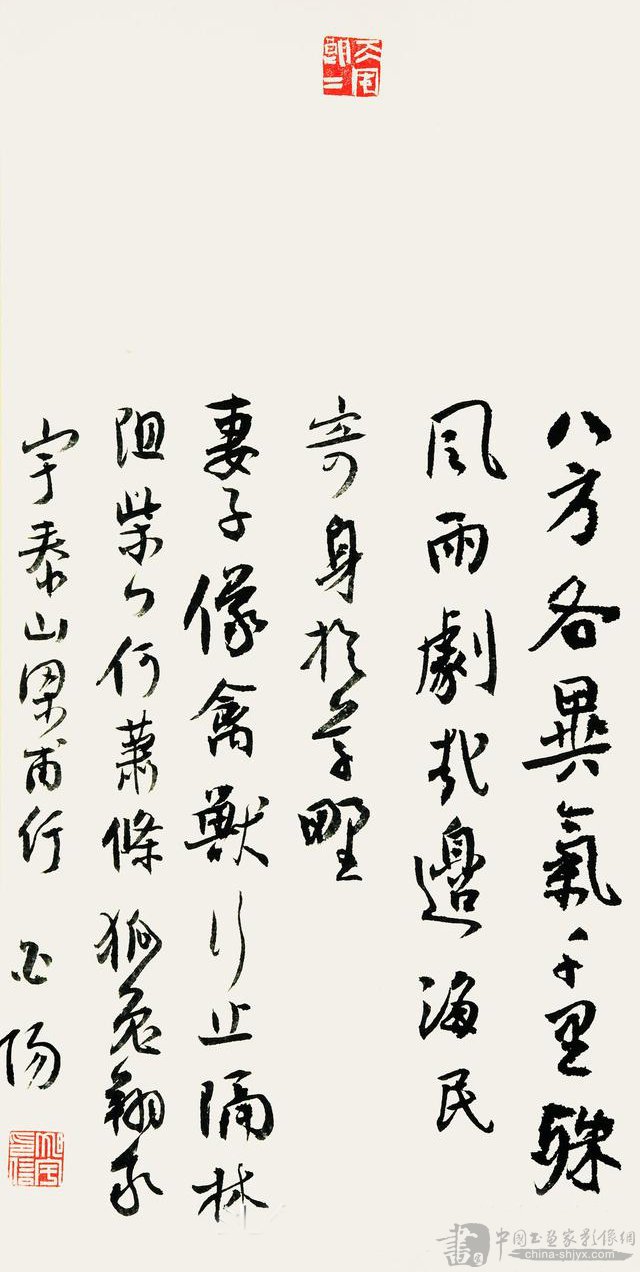 八方各異氣千里殊
風雨劇哉邊海民
寄身於草野
妻子像禽獸行止隔林
阻柴門何蕭條狐兔翔我
宇泰山梁甫行
陽
書 中國書畫家影像網
china-shjyx.com